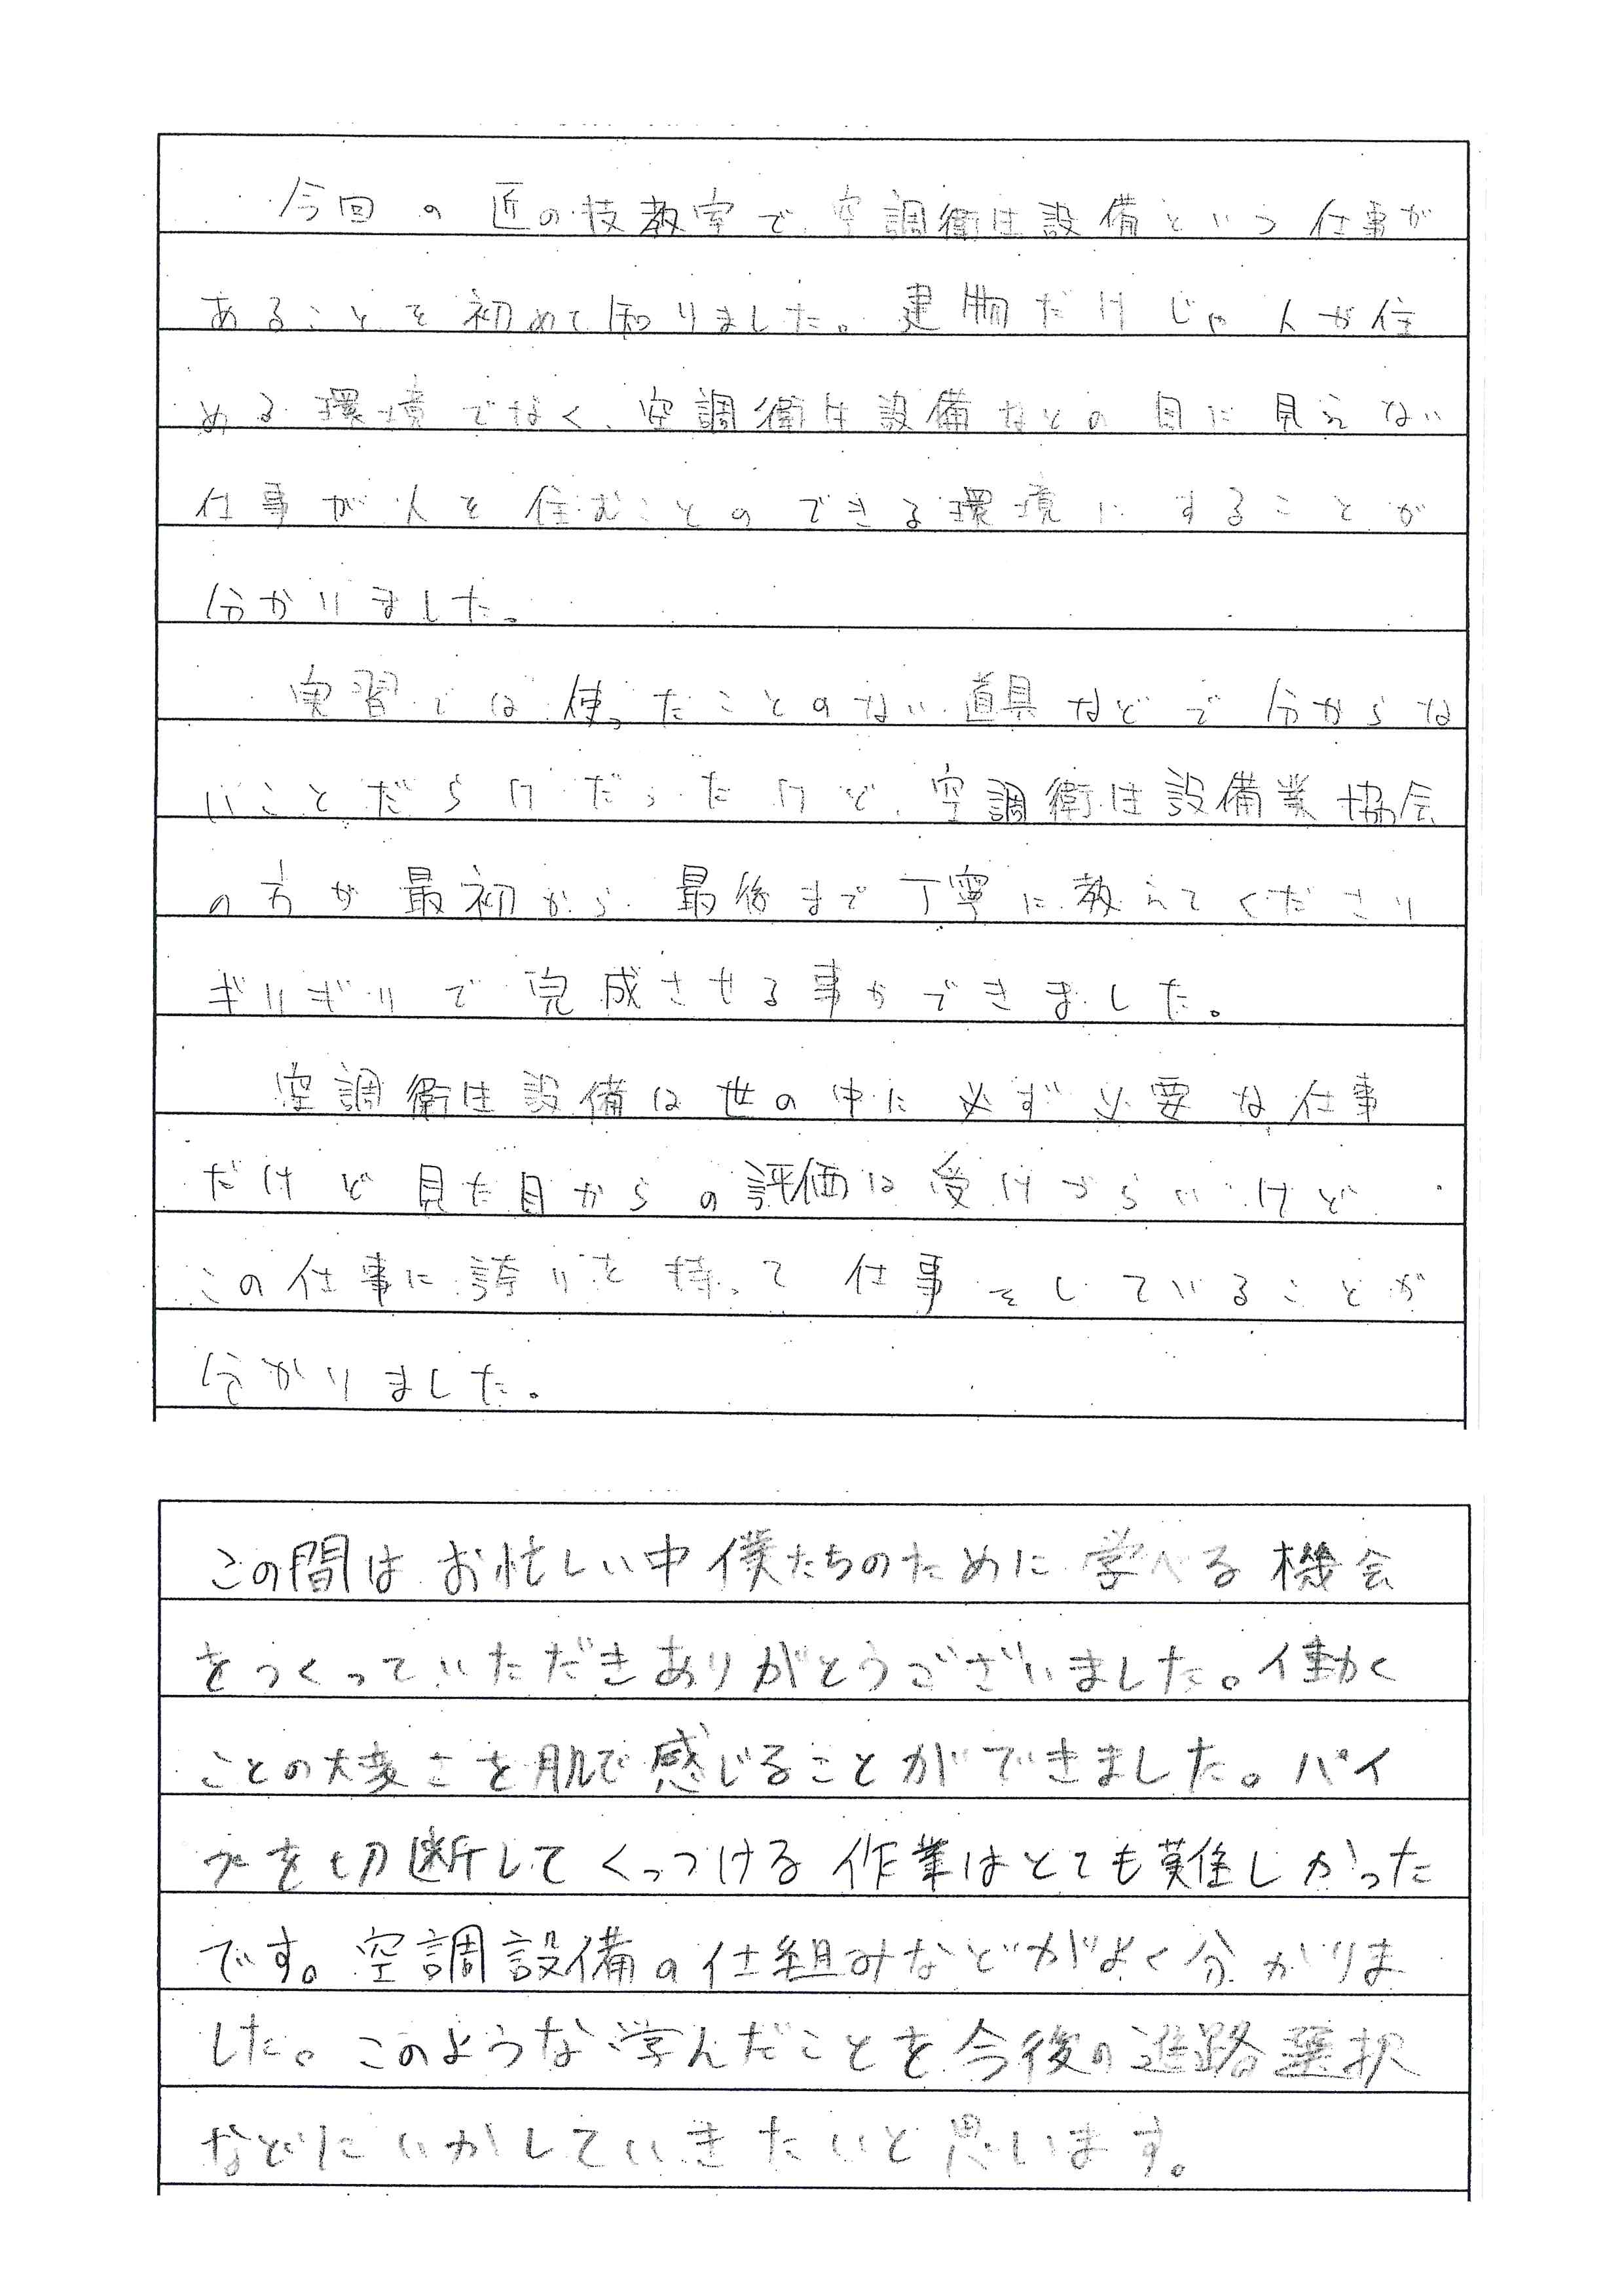 今回の匠の技教室で、空調衛生設備という仕事が
あることを初めて知りました。建物だけじゃ人が住
める環境でなく、空調衛生設備などの目に見えない
仕事が人を住むことのできる環境にすることが
分かりました。
実習では使ったことのない道具などで分からな
いことだらけだったけど、空調衛生設備業協会
の方が最初から最後まで丁寧に教えてくださり
ギリギリで完成させる事ができました。
空調衛生設備は世の中に必ず必要な仕事
だけど見た目からの評価は受けづらいけど
この仕事に誇りを持って仕事をしていることが
分かりました。
この間はお忙しい中僕たちのために学べる機会
をつくっていただきありがとうございました。働く
ことの大変さを肌で感じることができました。パイ
プを切断してくっつける作業はとても難しかった
です。空調設備の仕組みなどがよく分かりま
した。このような学んだことを今後の進路選択
などにいかしていきたいと思います。